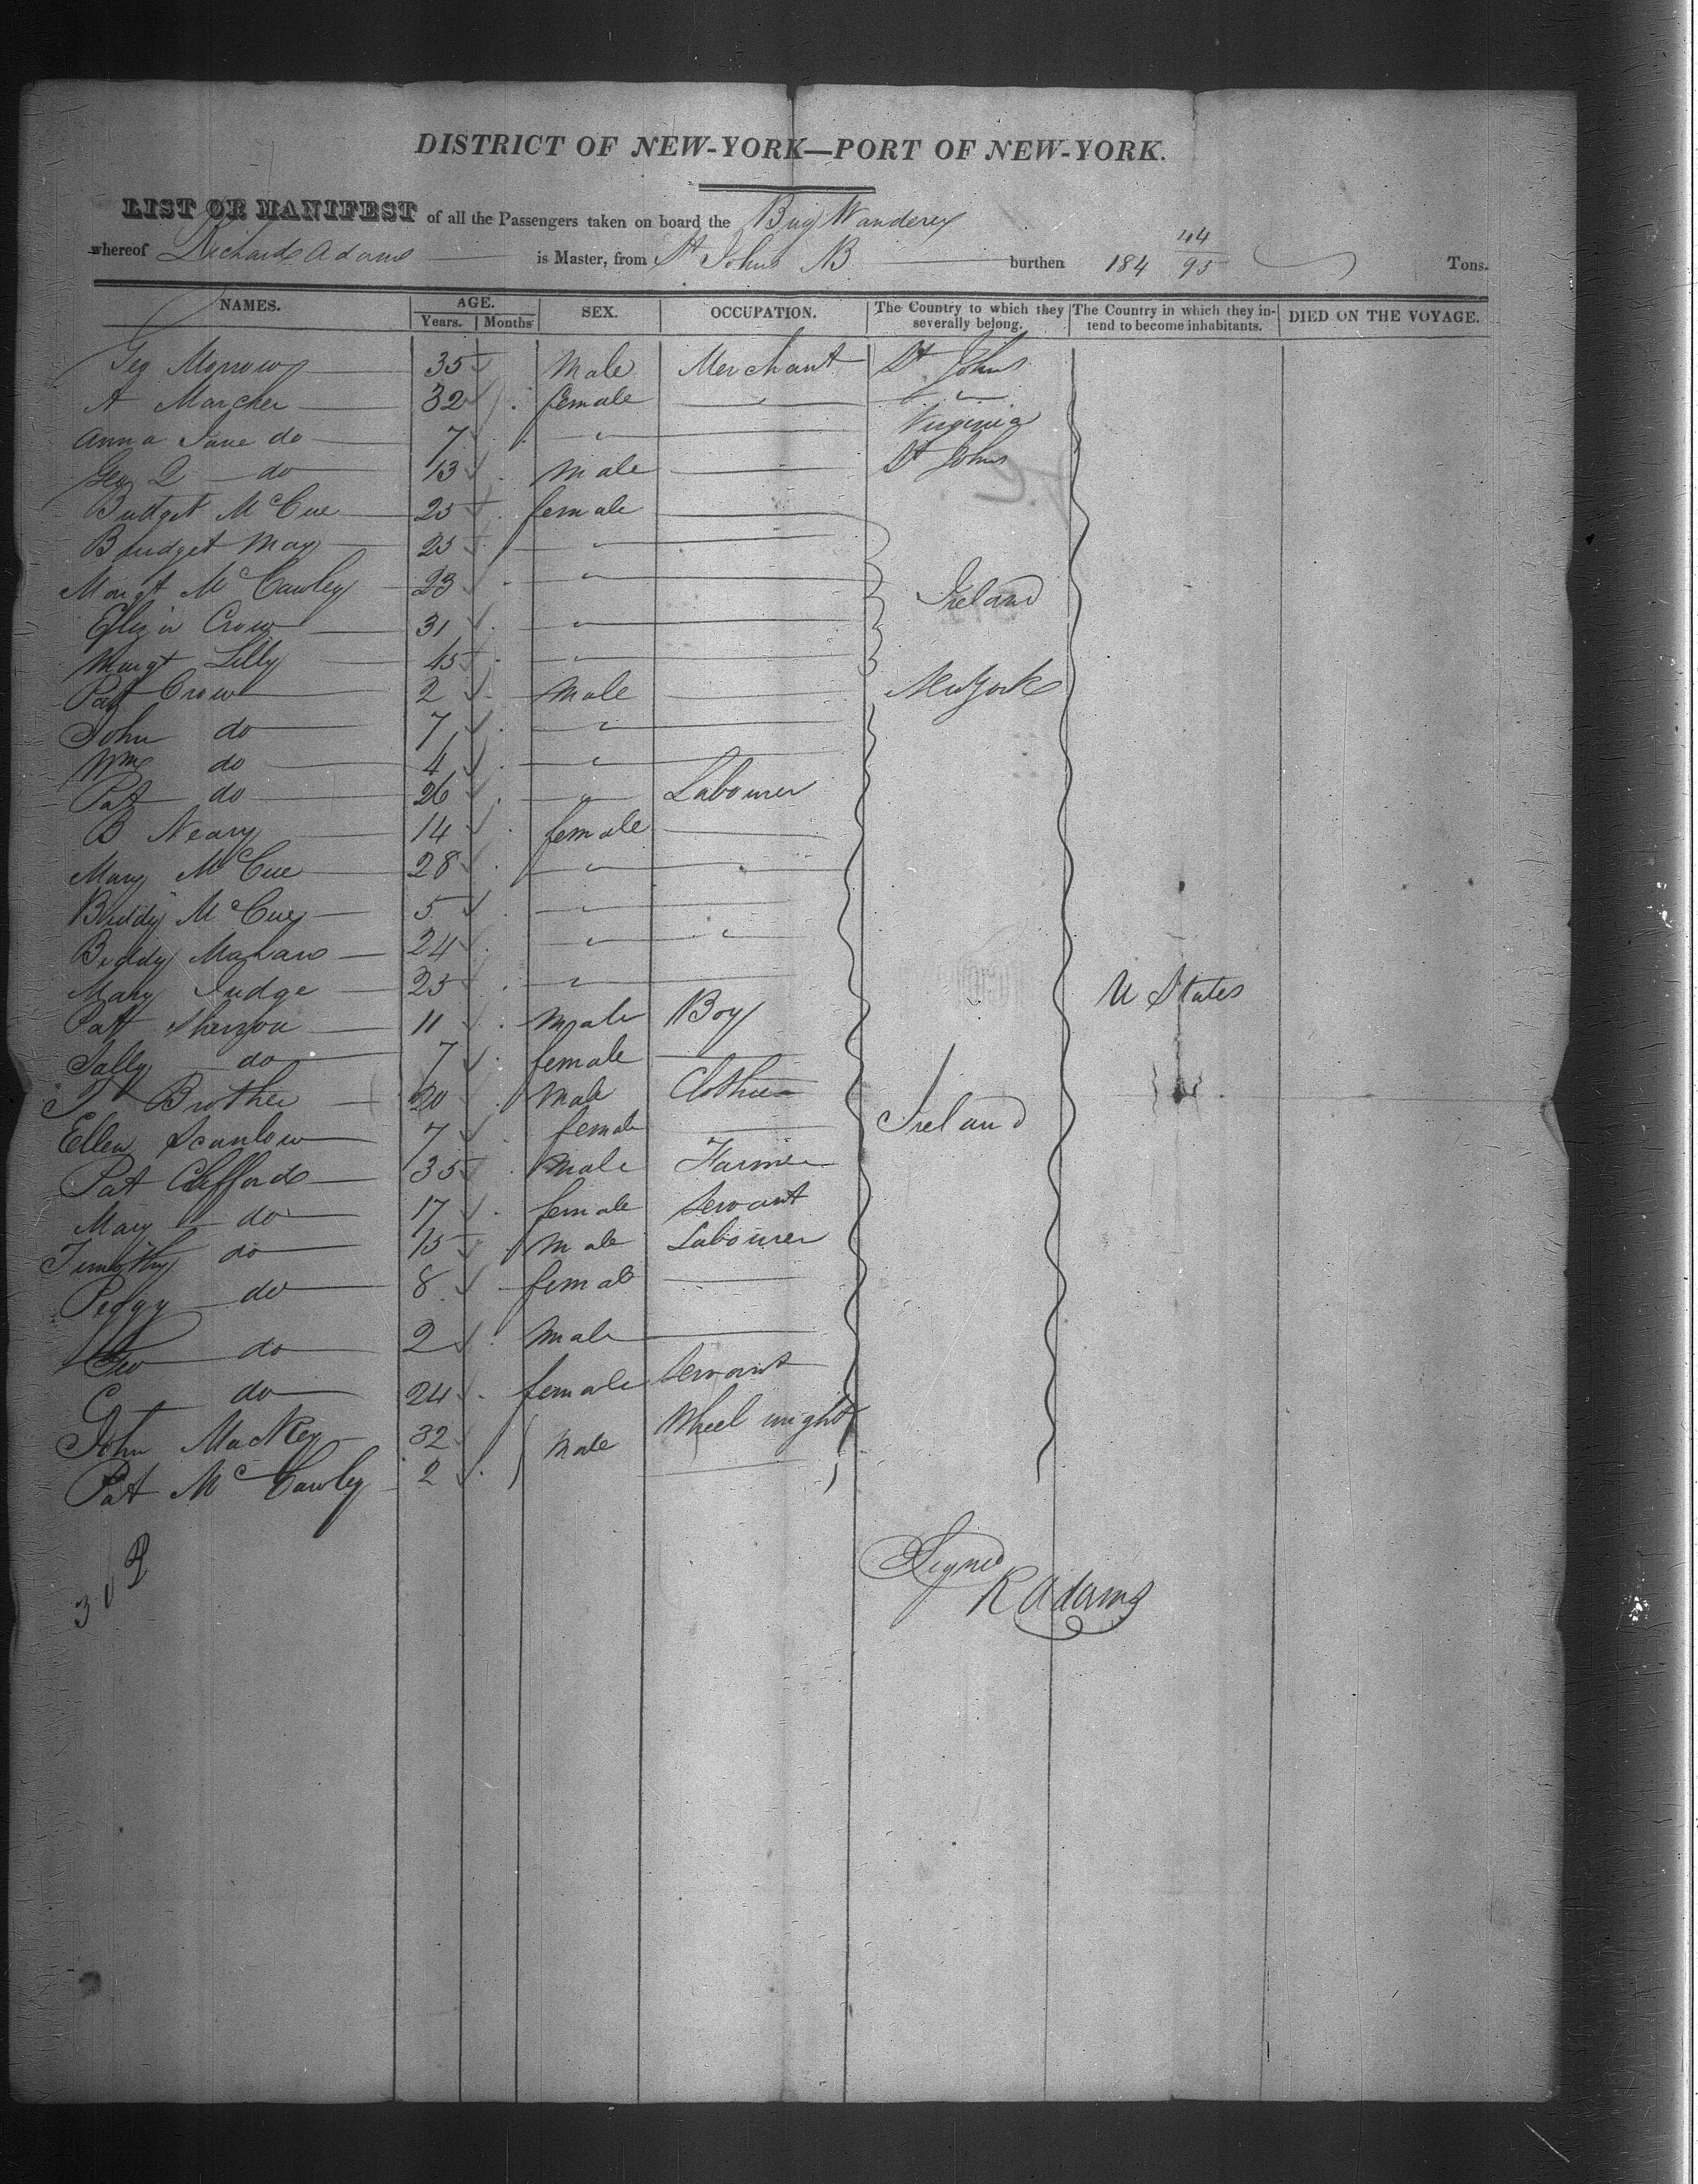 DISTRICT OF NEW-YORK—PORT OF NEW-YORK.
LIST OR MANIFEST of all the Passengers taken on board the Brig Wanderer
whereof Richard Adams is Master, from St Johns NB burthen 184 44/95 Tons.
NAMES. AGE. Years. Months SEX. OCCUPATION. The Country to which they severally belong. The Country in which they intend to become inhabitants. DIED ON THE VOYAGE.
Geo Morrow 35 Male Merchant St Johns
A Marcher 32 female " "
Anna Jane do 7 " Virginia
Geo do 13 male St Johns
Bridget McCue 25 female
Bridget May 25 "
Margt McCawley 23 " Ireland
Eliza Crow 31 "
Margt Lilly 45 "
Pat Crow 2 Male New York
John do 7 "
Wm do 4 "
Pat do 26 " Labourer
B Neary 14 female
Mary McCue 28 "
Biddy McCue 5 "
Biddy 24 " "
Mary Judge 25 " U States
Patt 11 male Boy
Sally do 7 female
Brother 20 Male Clothier
Ellen Scanlow 7 female Ireland
Pat Clifford 35 Male Farmer
Mary do 17 female Servant
Timothy do 15 Male Labourer
Peggy do 8 female
Geo do 2 Male
C do 24 female Servant
John MacKey 32 Male Wheel wright
Pat McCawley 2
Signed
R Adams